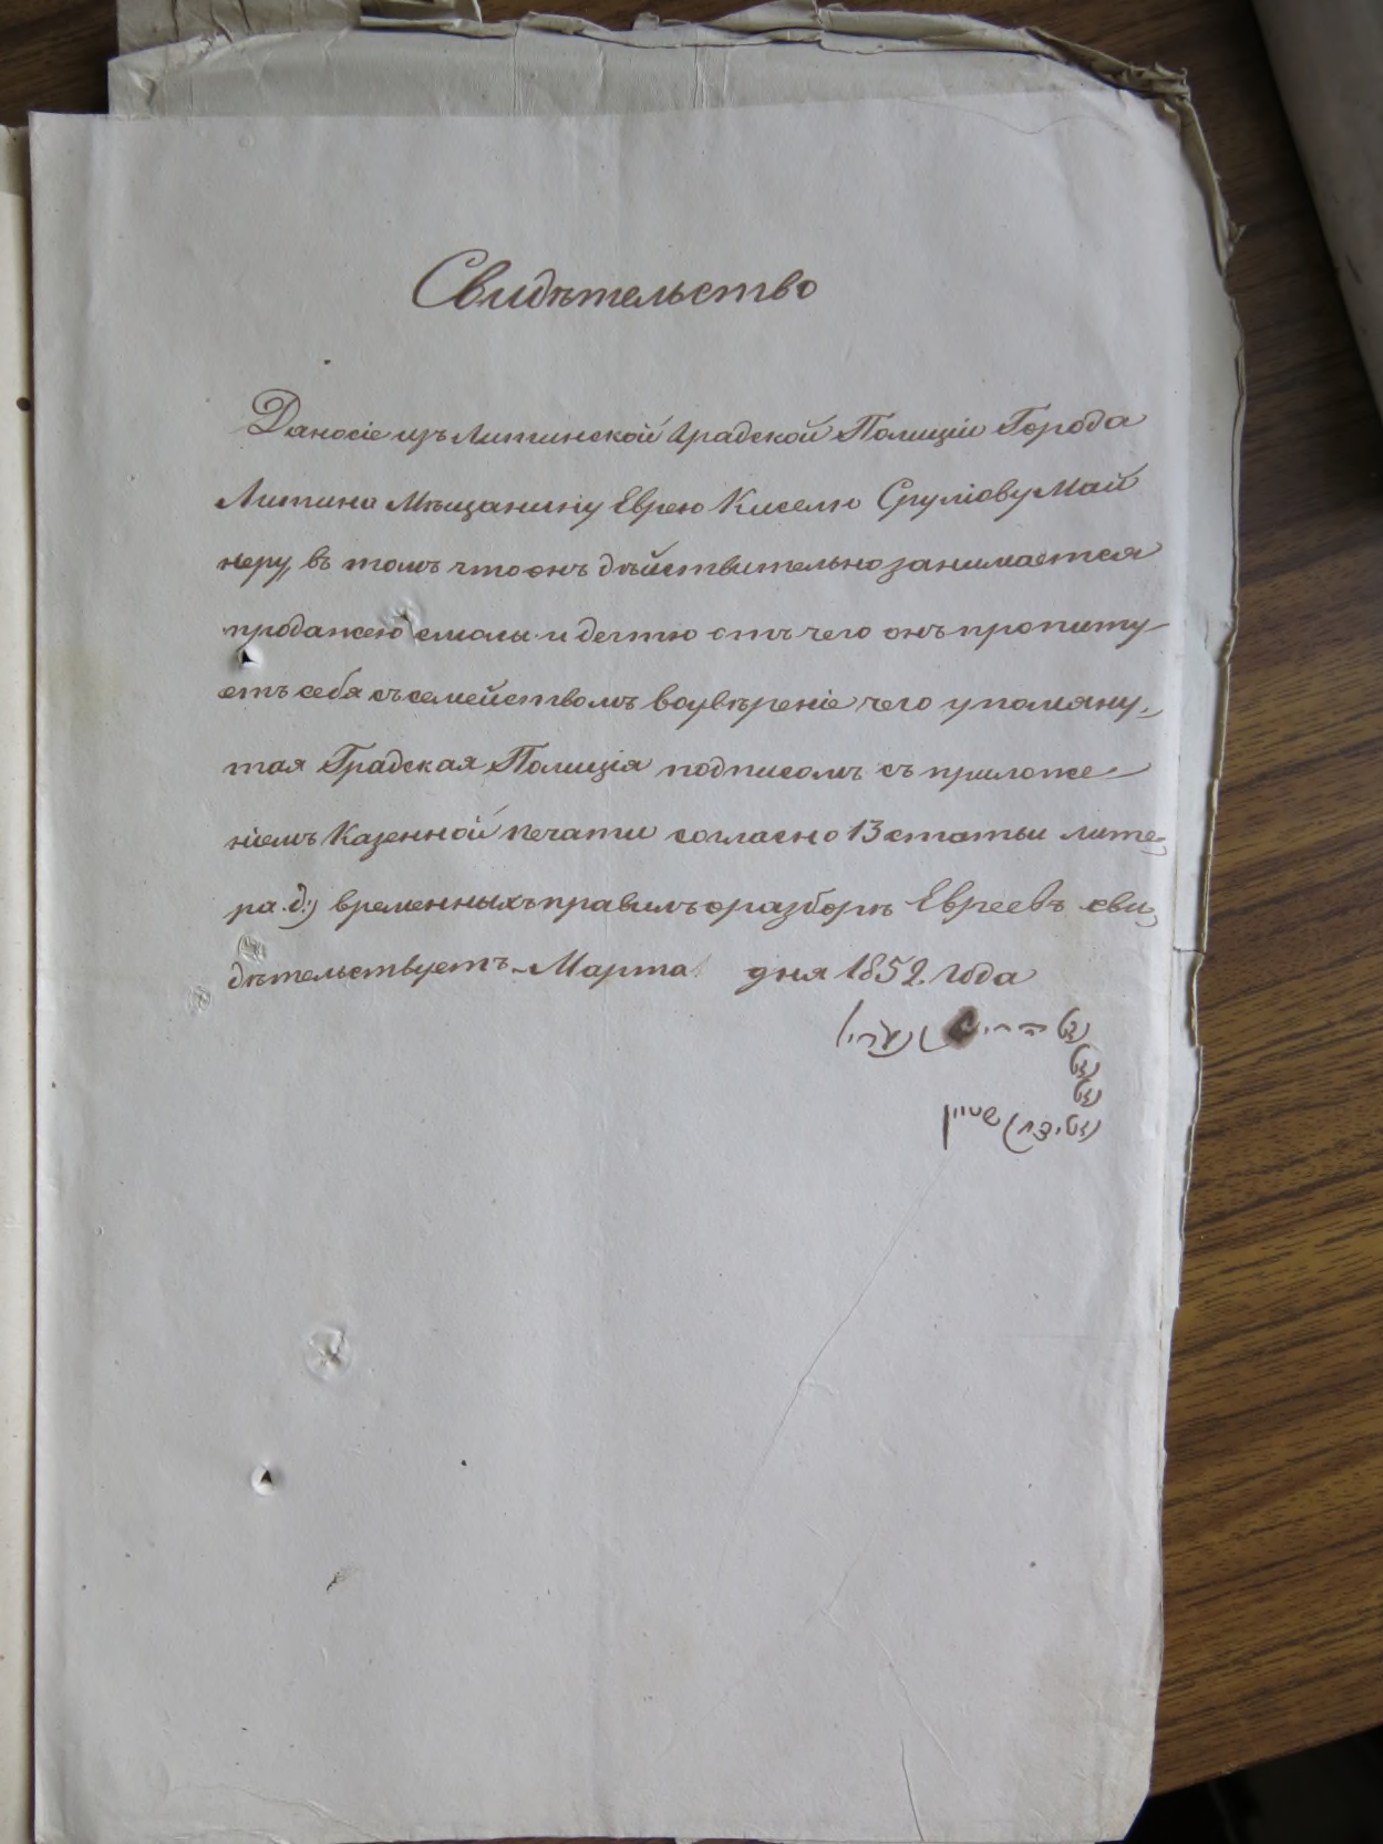 Свидѣтельство
Дано сіе изъ Литинской Градской Полиціи Города
Литина Мѣщанину Еврею Киселю Сруліову Май
неру, въ томъ что онъ дѣйствительно занимается
продажею смолы и дегтю отъ чего онъ пропиту-
етъ себя съ семействомъ воувѣреніе чего упомяну-
тая Градская Полиція подписомъ съ приложе-
ніемъ Казенной печати согласно 13 статьи лите-
ра д:) временныхъ правилъ о разборѣ Евреевъ сви-
дѣтельствуетъ. Марта дня 1852. года